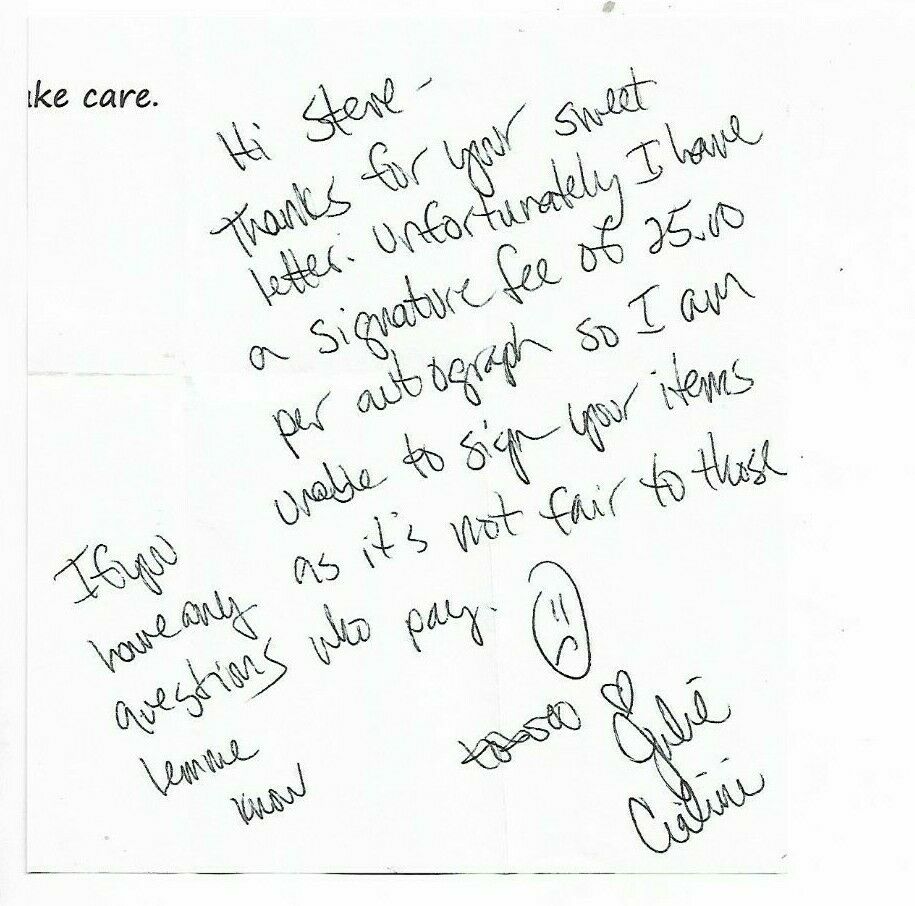 ke care.
Hi Steve -
Thanks for your sweet
letter. Unfortunately I have
a signature fee of 25.00
per autograph so I am
unable to sign your items
as it's not fair to those
who pay.
If you
have any
questions
lemme
know
Julie
Cialini